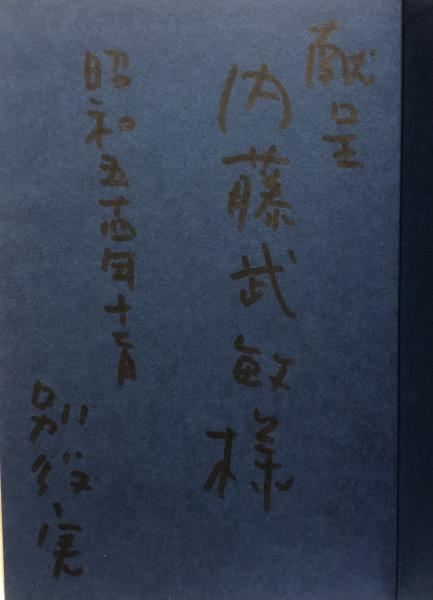 献呈
内藤武敏様
昭和五十四年十一月
別役実